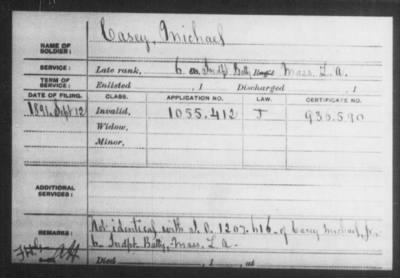 NAME OF SOLDIER: Casey, Michael
SERVICE: Late rank, Indpt Batty Mass. L. A.
TERM OF SERVICE: Enlisted , 1 Discharged , 1
DATE OF FILING. CLASS. APPLICATION NO. LAW. CERTIFICATE NO.
1891, Sept 12 Invalid, 1055.412 J
Widow,
Minor,
ADDITIONAL SERVICES:
REMARKS: Not identical with 1207.616 of Casey Michael, Jr.
Indpt Batty, Mass. L. A.
Died , 1 , at